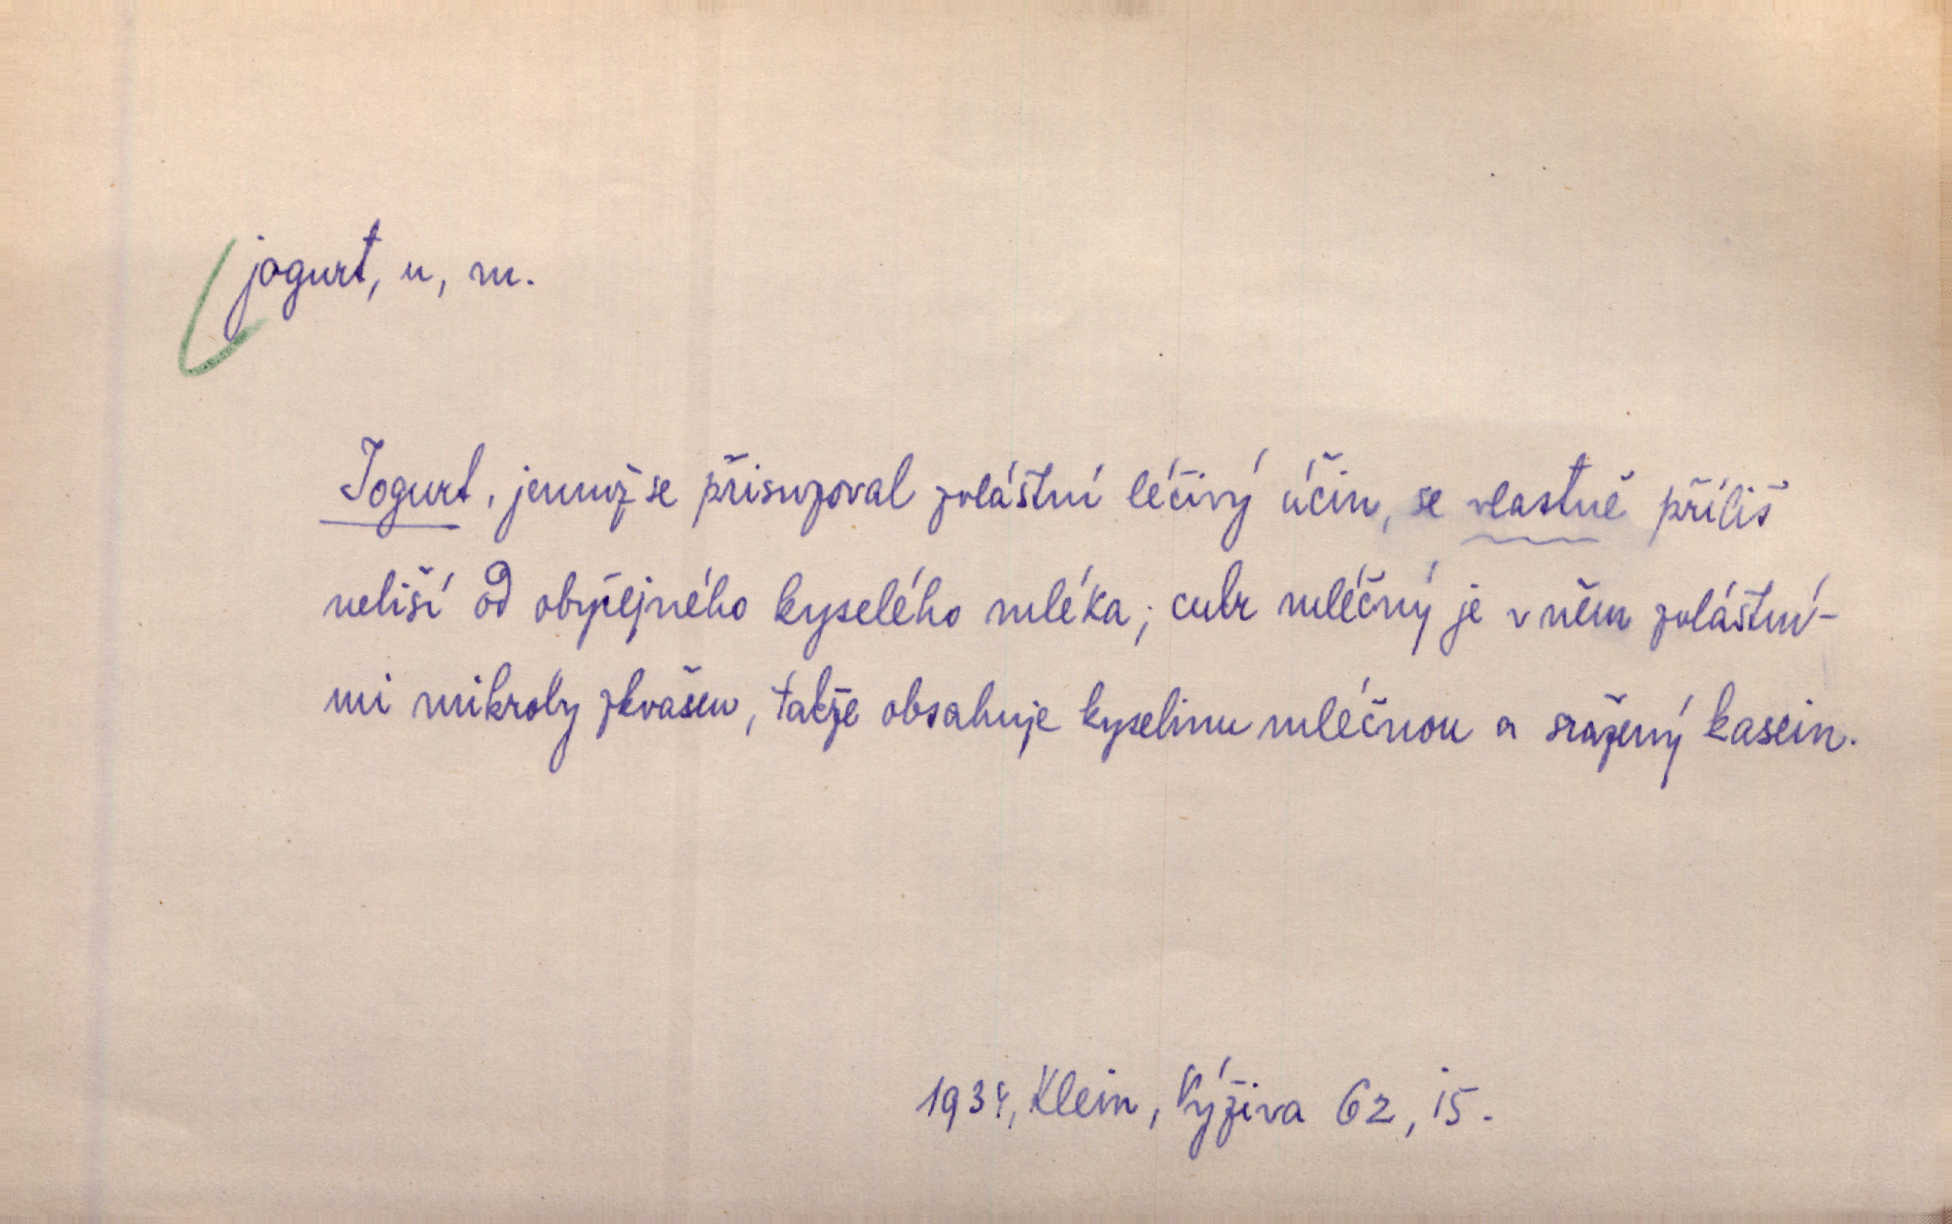 jogurt, u, m.
Jogurt, jemuž se přisuzoval zvláštní léčivý účin, se vlastně příliš
neliší od obyčejného kyselého mléka; cukr mléčný je v něm zvláštní-
mi mikroby zkvašen, takže obsahuje kyselinu mléčnou a sražený kasein.
1934, Klein, Výživa 62, 15.